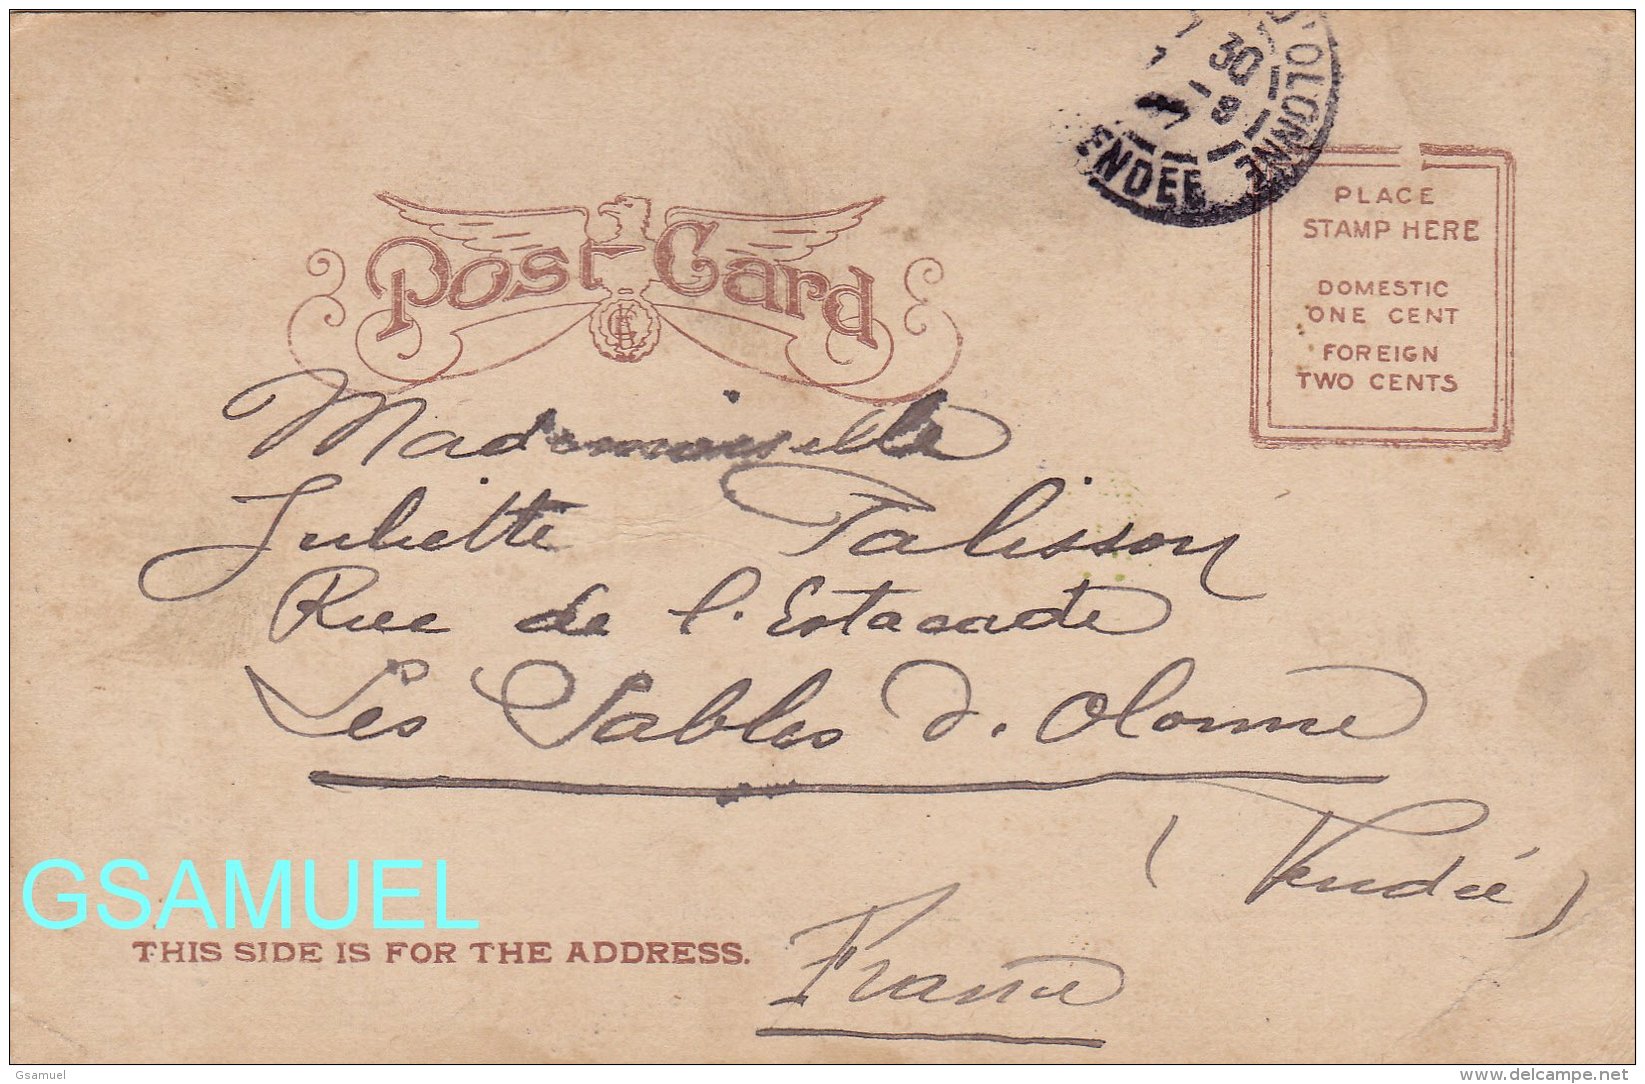 D'OLONNE
30
8
VENDEE
Post Card
PLACE
STAMP HERE
DOMESTIC
ONE CENT
FOREIGN
TWO CENTS
Mademoiselle
Juliette Palisson
Rue de l'Estacade
Les Sables d'Olonne
(Vendée)
France
THIS SIDE IS FOR THE ADDRESS.
GSAMUEL
Gsamuel
delcampe.net